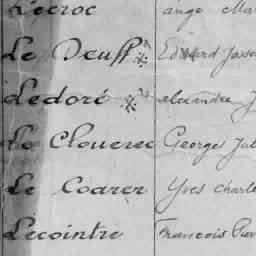 Lecroc ange Ma
Le Deuff Edouard Josse
Ledoré alexandre J
Le Clouerec Georges Jul
Le Coarer Yves Charle
Lecointre Francois Pier